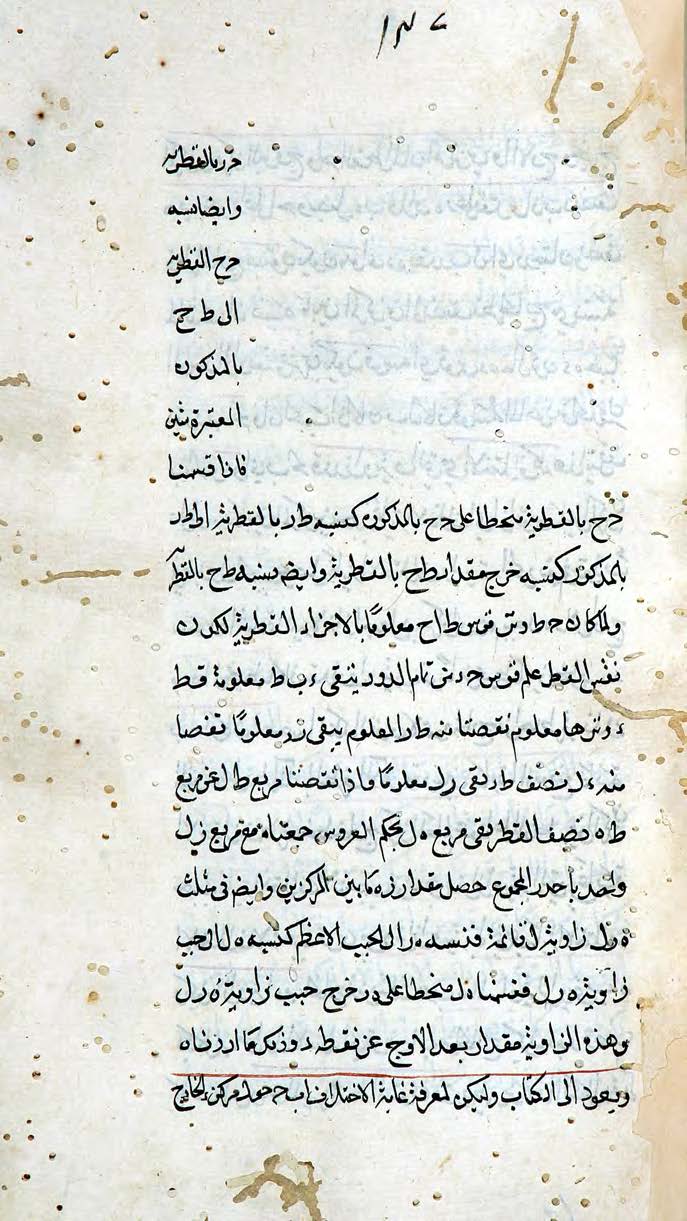 ١٣٧
ح ر بالقطرية
وايضا نسبة
ح ح القطرية
الى ط ح
بالمذكورة
المعتبرة تين
فاذا قسمنا
ح ح بالقطرية منحطا على ح ح بالمذكورة كنسبة ط ر بالقطرية الى ط ر
بالمذكورة كنسبة خرج مقدار ط ح بالقطرية وايضا نسبة ط ح بالقطر
ولما كان ح ط وتر قوس ط ا ح معلوما بالاجزاء القطرية لكون
نفس القطر علم قوس ح من تمام الدور يبقى ب ط معلومة ف ط
ء وترها معلوم نقصنا منه ط ر المعلوم يبقى ر ء معلوما نقصنا
منه ء ل نصف ط ء بقى ر ل معلوما فاذا نقصنا مربع ط ل عن مربع
ط ه نصف القطر بقى مربع ه ل بحكم العروس جمعناه مع مربع ر ل
وناخذ باجذر المجموع حصل مقدار ر ه ما بين المركزين وايضا فى مثلث
ه ر ل زاوية ل قائمة فنسبة ه ر الى الجيب الاعظم كنسبة ه ل الى جيب
زاوية ه ر ل فقسمنا ه ل منحطا على ه ر خرج جيب زاوية ه ر ل
وهذه الزاوية مقدار بعد الاوج عن نقطة د وذلك ما اردناه
ويعود الى الكتاب وليكن لمعرفة غاية الاختلاف ا ب ح حول مركز الخارج